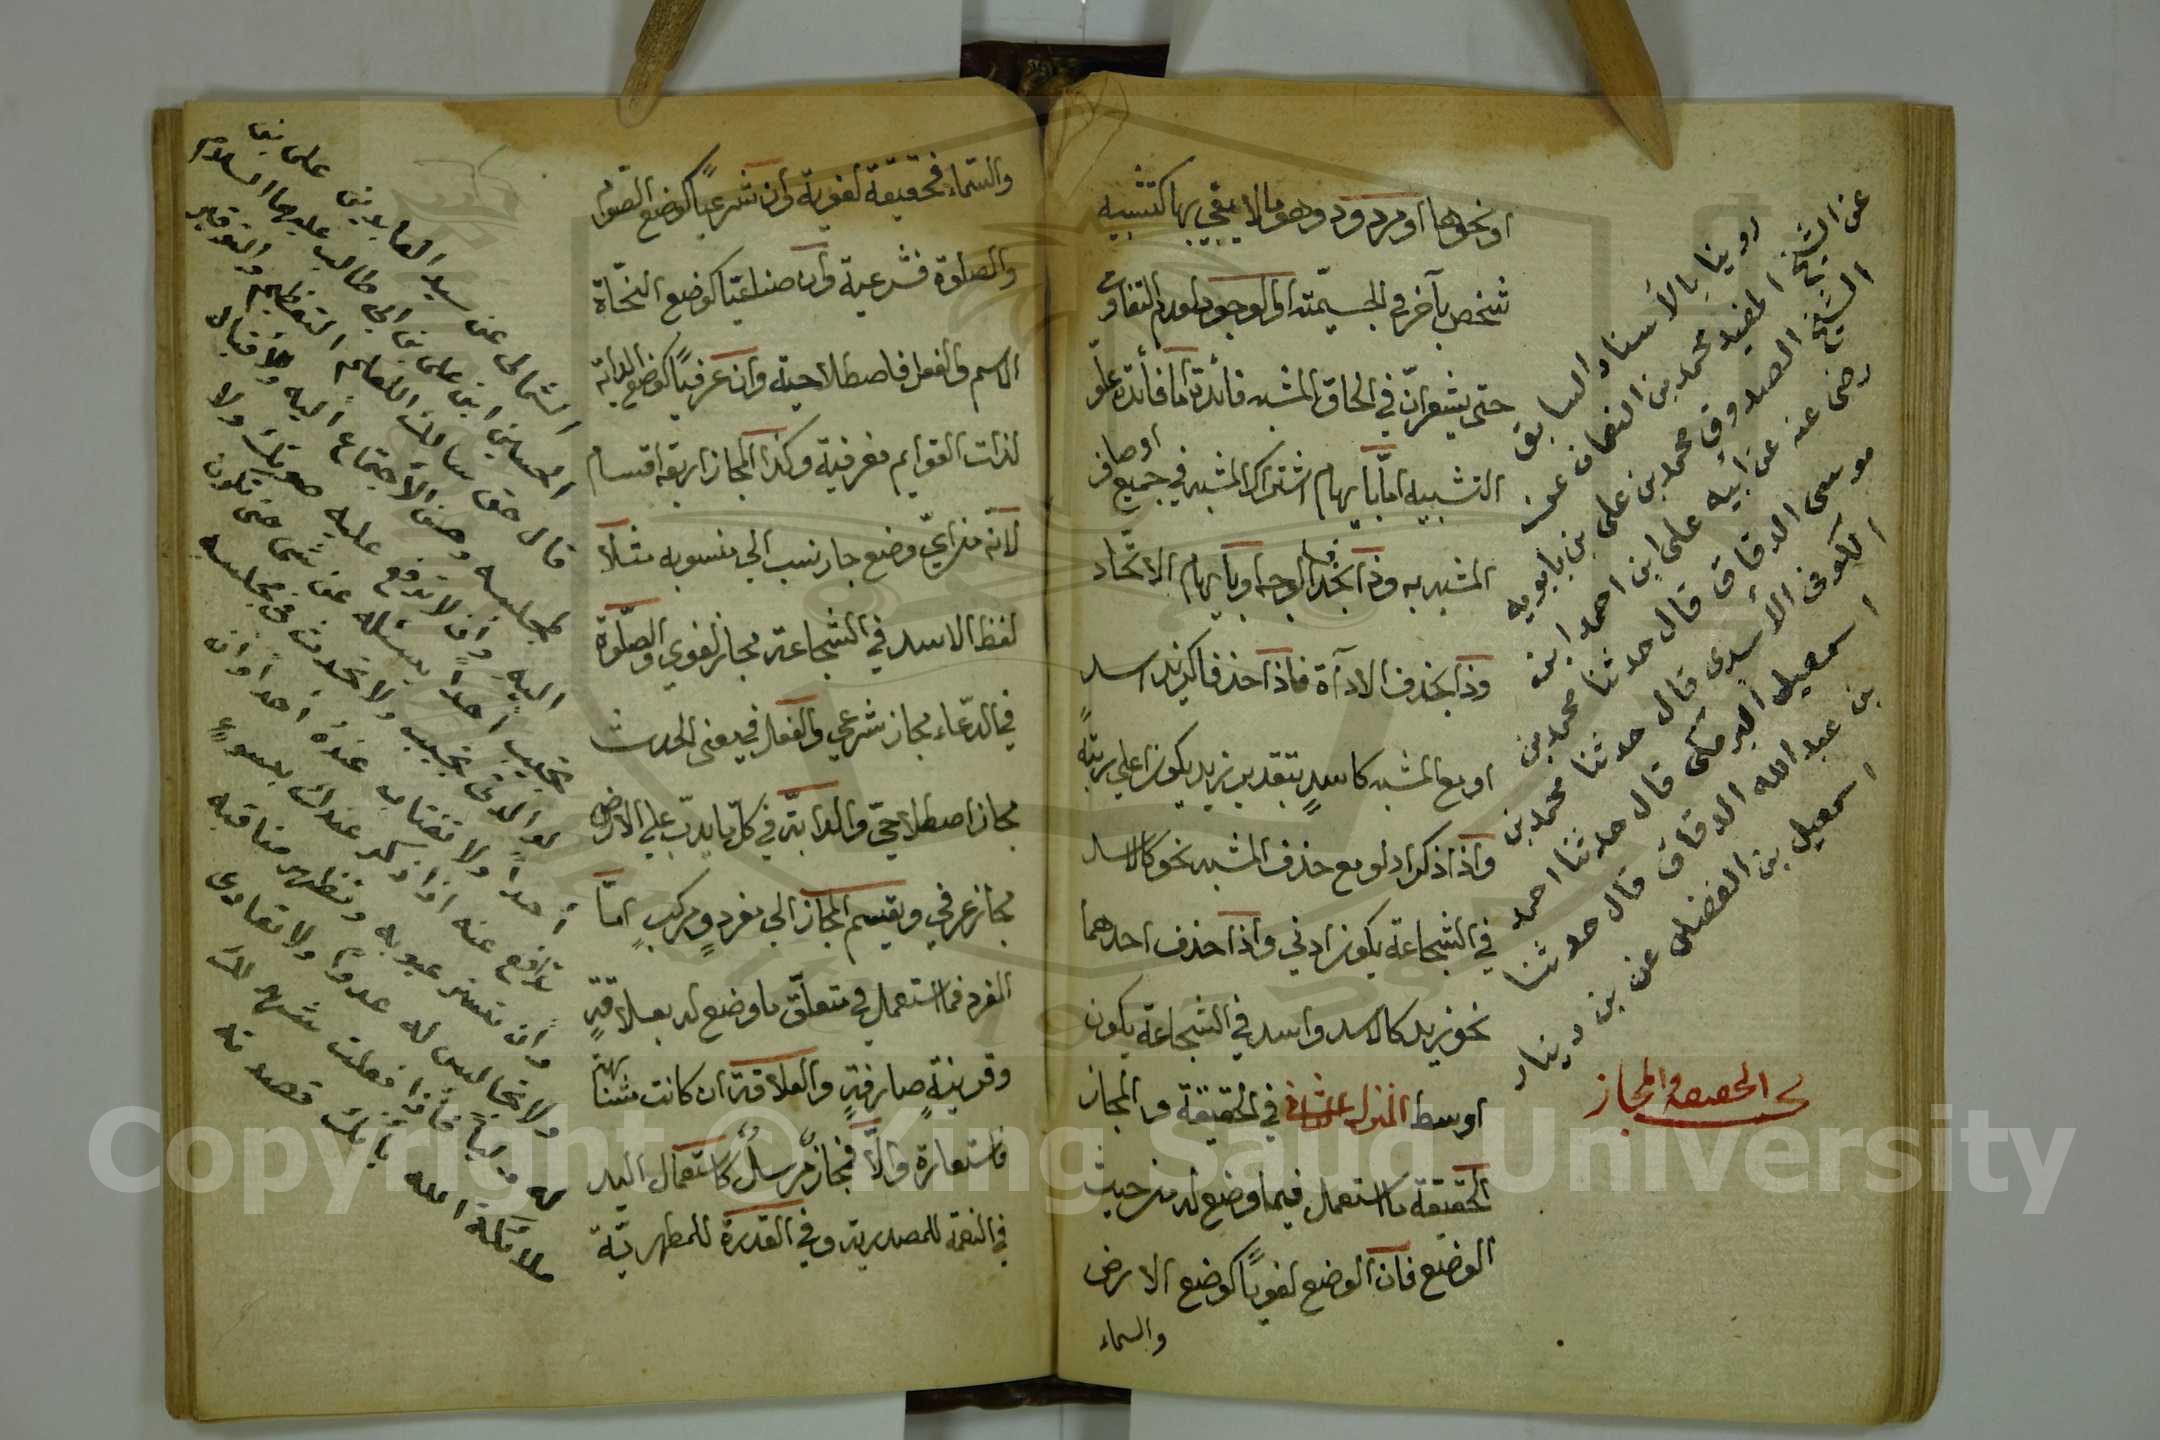 او نحوها او مردود وهو ما لا يفي بها كتشبيه
شخص بآخر في الجسيمة او الوجود لعدم التفاوت
حتى يشعر ان في الحاق المشبه فائدة اما فائدة علو
التشبيه اما بايهام اشتراك المشبه في جميع اوصاف
المشبه به وذا بحذف الوجه او بايهام الاتحاد
وذا بحذف الاداة فاذا حذفا كزيد اسد
او مع المشبه كاسد بتقدير زيد يكون اعلى رتبة
واذا ذكرا ولو مع حذف المشبه نحو كالاسد
في الشجاعة يكون ادنى واذا حذف احدهما
نحو زيد كالاسد واسد في الشجاعة يكون
اوسط المنزل الثاني في الحقيقة والمجاز
الحقيقة ما استعمل فيما وضع له من حيث
الوضع فان الوضع لغويًا كوضع الارض
والسماء
روينا بالأسناد السابق
عن الشيخ المفيد محمد بن النعمان عن
الشيخ الصدوق محمد بن على بن بابويه
رضى عنه عن أبيه على ابن احمد ابن
موسى الدقاق قال حدثنا محمد بن
الكوفى الأسدى قال حدثنا محمد بن
اسمعيل البرمكى قال حدثنا احمد
بن عبد الله الدقاق قال حدثنا
اسمعيل بن الفضل عن بن دينار
في الحقيقة والمجاز
والسماء فحقيقة لغوية وان شرعيًا كوضع الصوم
والصلوة فشرعية وان صناعيًا كوضع النحاة
الاسم والفعل فاصطلاحية وان عرفيًا كوضع الدابة
لذات القوايم فعرفية وكذا المجاز اربعة اقسام
لأنه من اي وضع جاز نسب الى منسوبه مثلا
لفظ الاسد في الشجاعة مجاز لغوي والصلوة
في الدعاء مجاز شرعي والفعل في معنى الحدث
مجاز اصطلاحي والدابة في كل ما يدب على الارض
مجاز عرفي ويقسم المجاز الى مفرد ومركب اما
المفرد فما استعمل في متعلق ما وضع له بعلاقة
وقرينة صارفة والعلاقة ان كانت مشابهة
فاستعارة والا فمجاز مرسل كاستعمال اليد
في النعمة للمصدرية وفي القدرة للمظهرية
الثمالى عن سيد العابدين على بن
الحسين ابن على بن ابى طالب عليهما السلام
قال حق سائسك بالعلم التعظيم والتوقير
لمجلسه وحسن الأجتماع أليه والأقبال
اليه وان لا ترفع عليه صوتك ولا
تجيب أحدًا يسئله عن شىء حتى يكون
هو الذى يجيب ولا تحدث فى مجلسه
أحدًا ولا تغتاب عنده أحدًا وان
تدفع عنه اذا ذكر عندك بسوء
وأن تستر عيوبه وتظهر مناقبه
ولا تجالس له عدوًا ولا تعادى
له وليًا فأذا فعلت شهد لك
ملائكة الله بأنك قصدته
Copyright © King Saud University